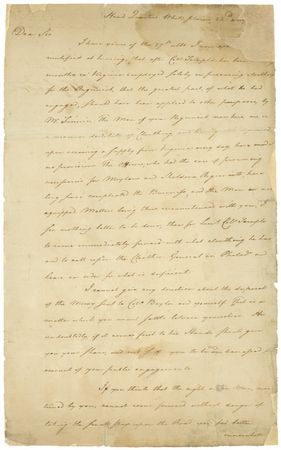 Head Quarters White plains 23d Aug
Dear Sir
I have yours of the 27th ulto. I am
mortified at hearing, that after Colo. Temple has been
months in Virginia employed solely in procuring Cloathing
for the Regiment, that the greatest part of what he had
engaged, should have been applied to other purposes by
Mr. Finnie. The Men of your Regiment now here are in
a manner destitute of Cloathing and
upon receiving a supply from Virginia every day have made
no provision. The Officers who had the care of procuring
necessaries for Moylan's and Sheldon's Regiments have
long since compleated the Business, and the Men are
equipped. Matters being thus circumstanced with you, I
see nothing better to be done, than for Lieut. Colo. Temple
to come immediately forward with what cloathing he has
and to call upon the Clothier General in Philada. and
leave an order for what is deficient.
I cannot give any direction about the disposal
of the Money sent to Colo. Baylor and yourself. That is a
matter which you must settle between yourselves. He
undoubtedly, if it comes first to his Hands, should give
you your share, and not of
account of your public engagements.
If you think that the eight Men, men-
tioned by you, cannot come forward without danger of
taking the small pox upon the Road, you had better
innoculate